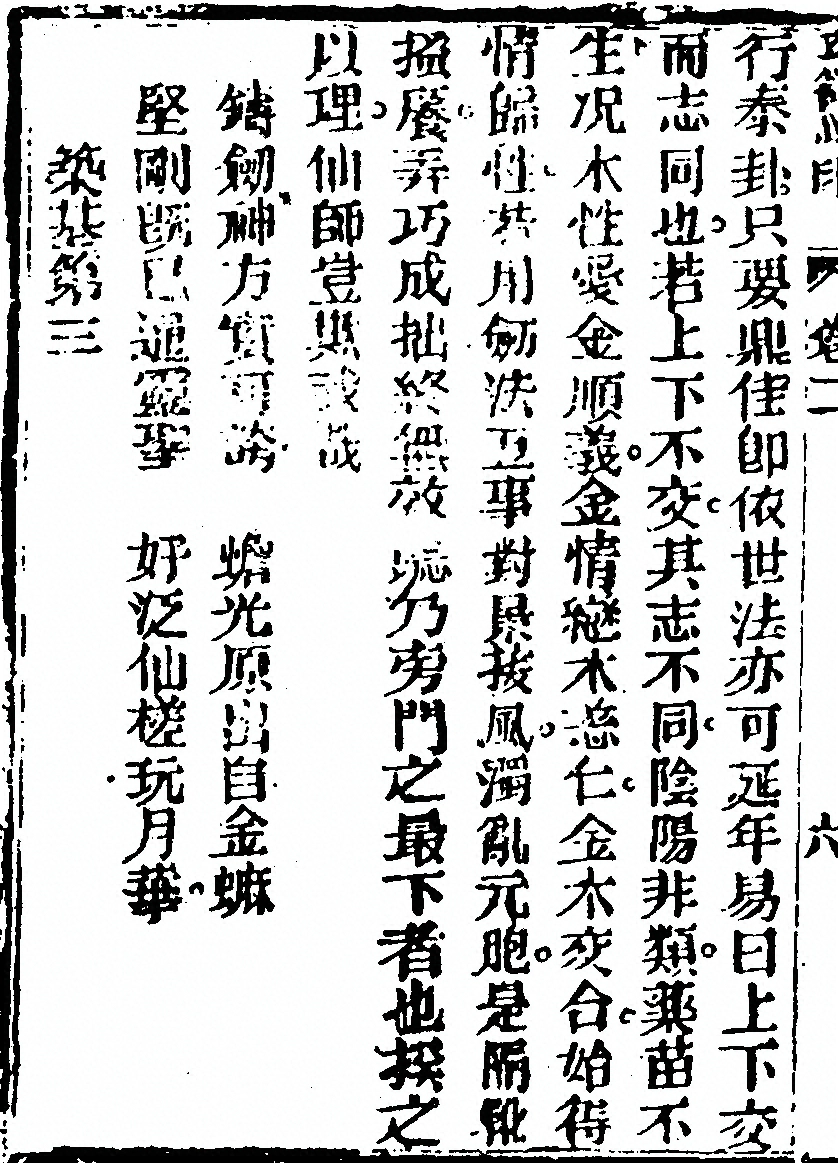 卷二 六
行泰卦只要鼎佳卽依世法亦可延年易曰上下交
而志同也若上下不交其志不同陰陽非類藥苗不
生况木性愛金順義金情戀木慈仁金木交合始得
情歸性若用劒法工事對景接風濁亂元胞是隔靴
搔癢弄巧成拙終無效 乃旁門之最下者也揆之
以理仙師豈欺我哉
鑄劒神方實可誇 蟾光原出自金蟆
堅剛旣已通靈聖 好泛仙槎玩月華
築基第三